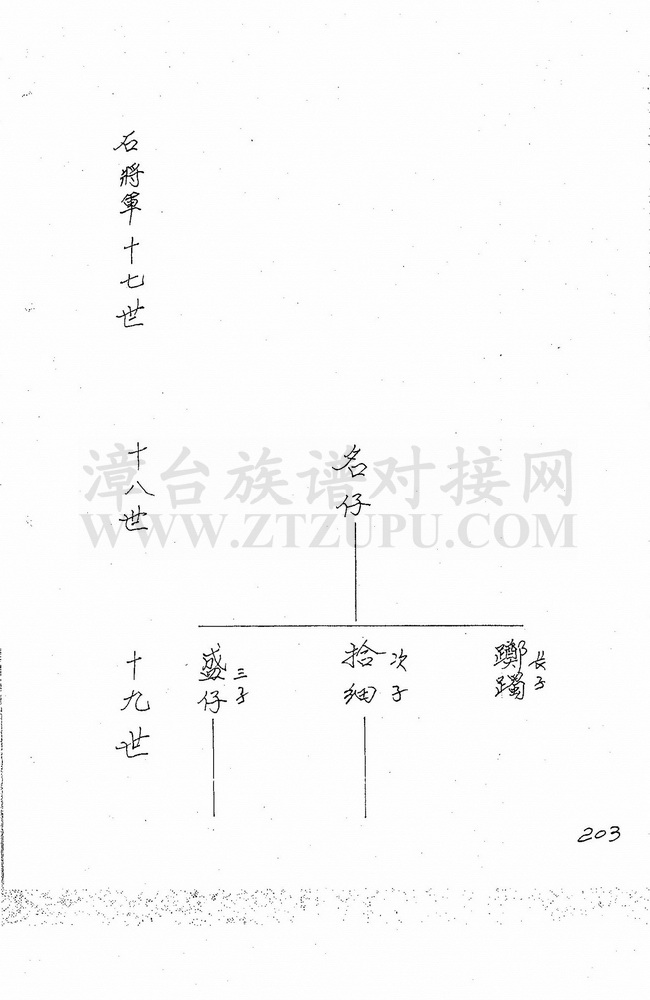 石將軍十七世
十八世
名仔
漳台族谱对接网
WWW.ZTZUPU.COM
十九世
長子
躑躅
次子
拾細
三子
盛仔
203